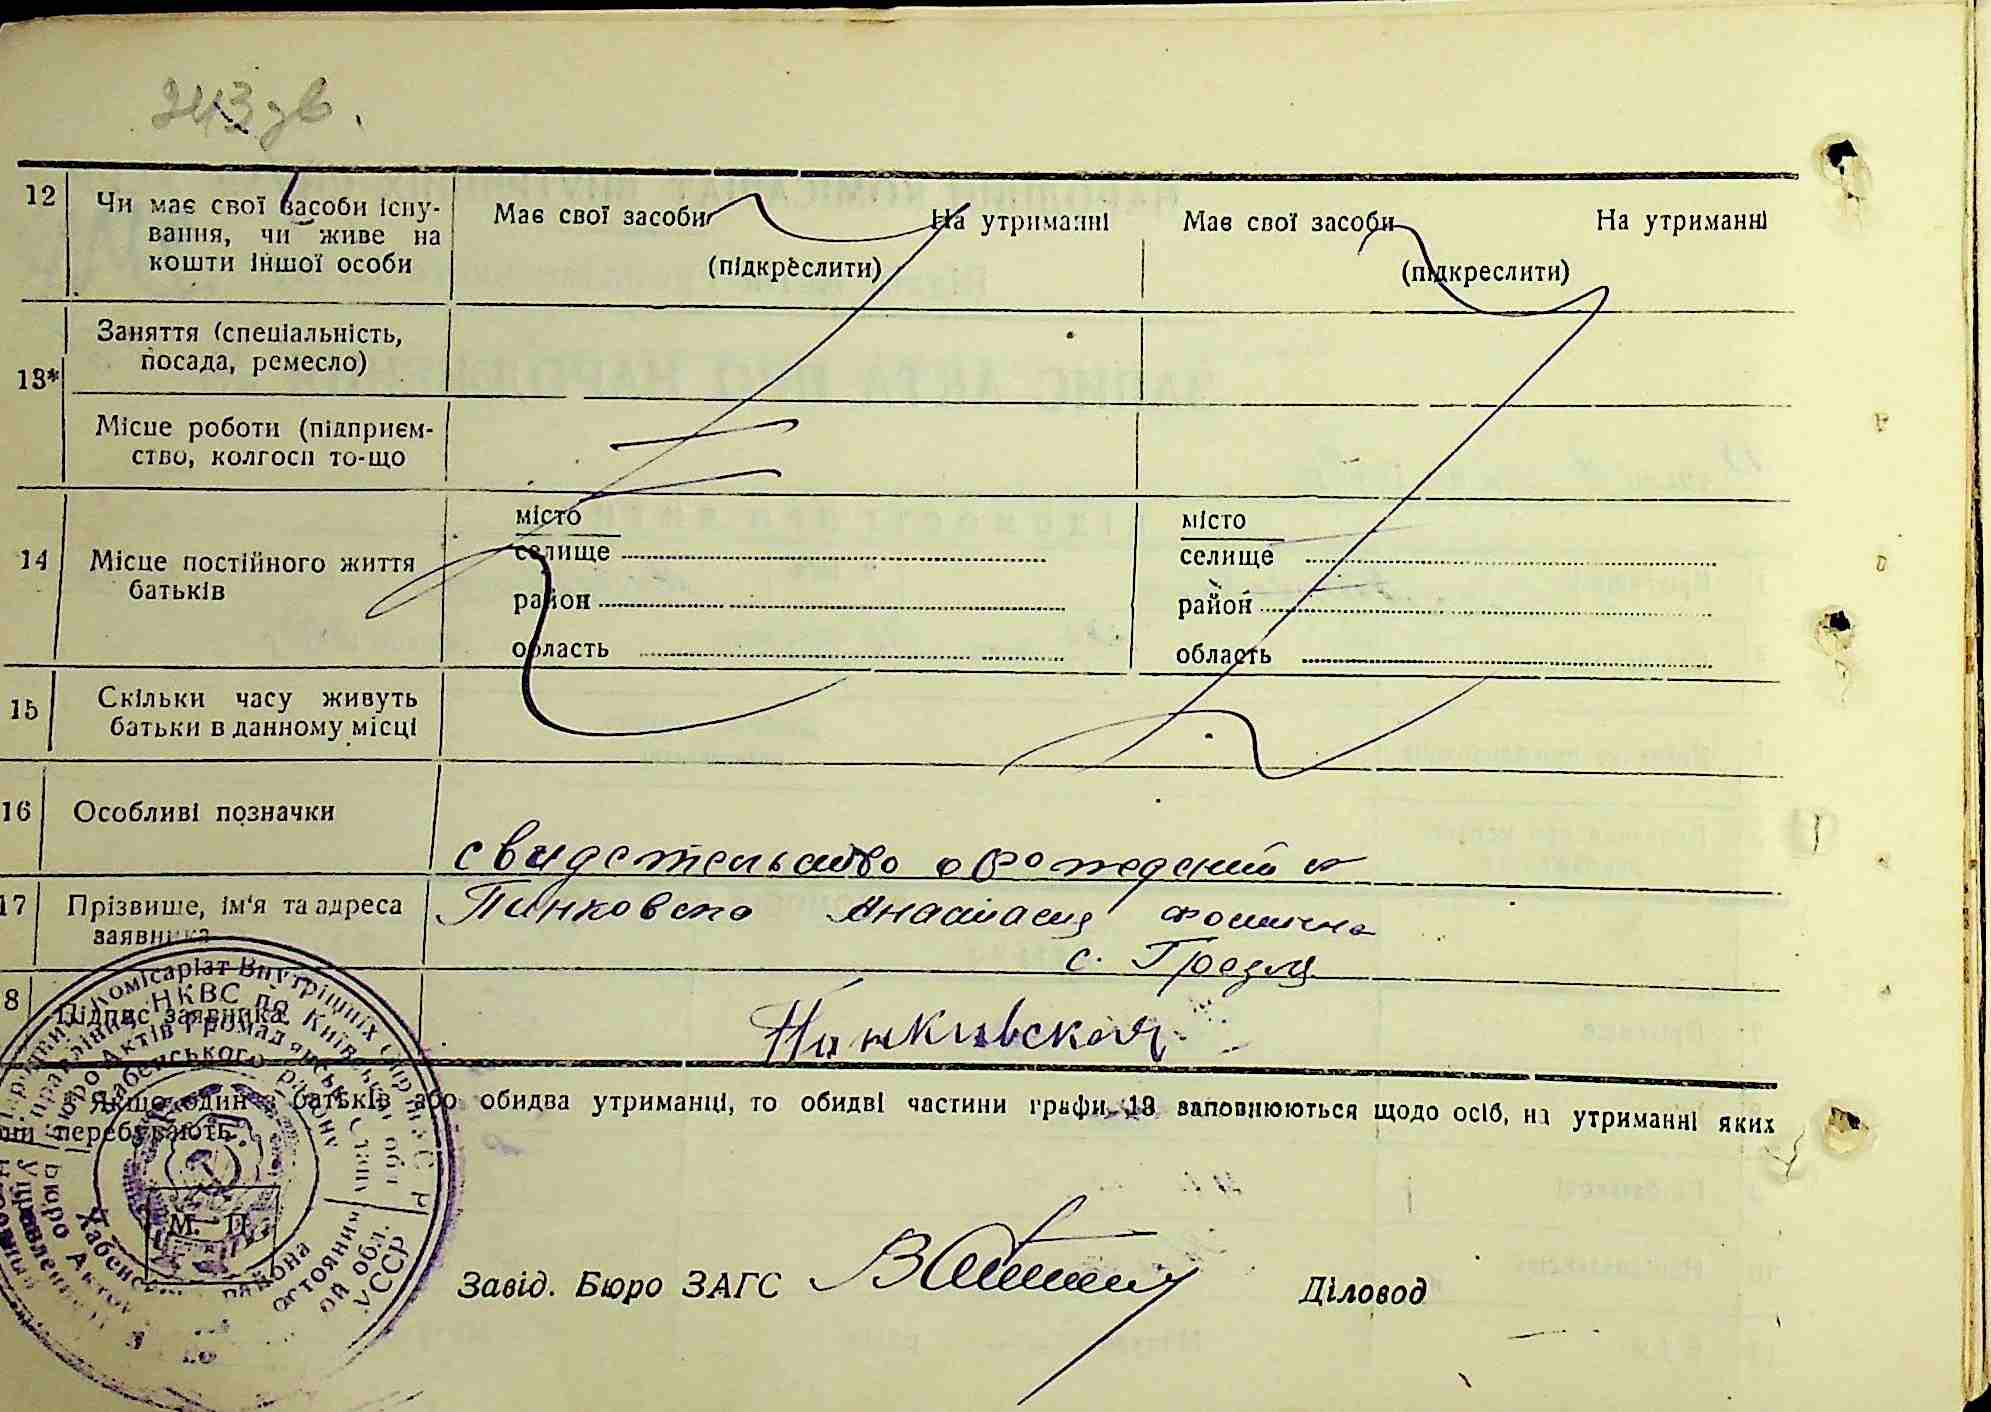 243 зв.
12 Чи має свої засоби існу-
вання, чи живе на
кошти іншої особи
Має свої засоби На утриманні
(підкреслити)
Має свої засоби На утриманні
(підкреслити)
13* Заняття (спеціальність,
посада, ремесло)
Місце роботи (підприєм-
ство, колгосп то-що
14 Місце постійного життя
батьків
місто
селище
район
область
місто
селище
район
область
15 Скільки часу живуть
батьки в данному місці
16 Особливі позначки
свидетельство о рождении
17 Прізвише, ім'я та адреса
заявника
Пинковско Анастасия Фомична
с. Грезля
8 Підпис заявника
Пинкивская
* Якщо один з батьків або обидва утриманці, то обидві частини графи 13 заповнюються щодо осіб, на утриманні яких
они перебувають.
Комісаріат Внутрішніх Справ УСРР
Управління НКВС по Київській обл.
Бюро Актів Громадянського Стану
Хабенського району
УССР
М. П.
Завід. Бюро ЗАГС
Діловод